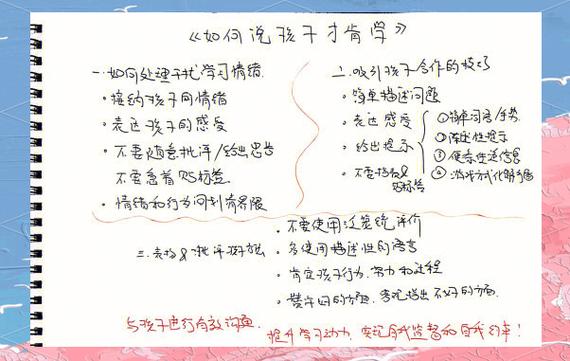 《如何说孩子才肯学》
一.如何处理干扰学习情绪.
·接纳孩子的情绪
·表达孩子的感受
·不要随意批评/给出忠告
不要急着贴标签.
·情绪和行为间划清界限
二.吸引孩子合作的技巧
·简单描述问题
·表达感受
·给出提示
①简单词语/手势
②陈述性提示
③便条生送信息
④游戏方式化解矛盾
·不要指责&贴标签
三.表扬&批评技能
·不要使用泛笼统评价
·多使用描述性的语言
·肯定孩子行为.努力和过程
·赞许好的方面,客观指出不好的方面.
与孩子进行有效沟通.
提升学习动力,实现自我监督和自我约束!